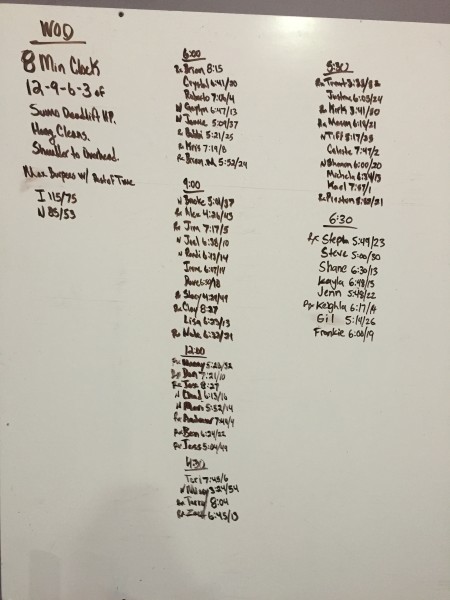 WOD
8 Min Clock
12-9-6-3 of
Sumo Deadlift H.P.
Hang Cleans.
Shoulder to Overhead.
Max Burpees w/ Rest of Time
I 115/75
N 85/53
6:00
Rx Brian 8:15
Crystal 6:41/20
Roberto 7:06/4
N Gaylyn 6:47/13
N Jamie 5:09/37
Rx Bobbi 5:21/25
Rx Kris 7:19/8
Rx Brian.M 5:52/24
9:00
N Brooke 5:01/37
Rx Alex 4:26/43
Rx Jim 7:17/5
N Joel 6:38/10
N Randi 6:13/14
Irene 6:47/14
Dave 6:30/18
Stacy 4:29/49
Rx Clay 8:27
Lisa 6:33/13
Rx 6:32/21
12:00
5:26/32
Dan 7:21/10
Rx Joe 8:27
N Chad 6:13/16
N 5:52/14
Rx 7:44/4
Rx Ben 6:24/22
Rx Jess 5:04/44
4:30
Tori 7:45/6
N 3:24/54
Rx Terry 8:04
Rx Zach 6:45/13
5:30
Rx Trent
Justine 6:05/24
Rx Kirk 3:41/50
Rx 6:19/21
N Tiff 8:17/25
Celeste 7:47/2
N Shannon 6:00/20
Michela 6:34/13
Kael 7:57/1
Rx Preston
6:30
Rx Steph 5:49/23
Steve 5:00/30
Shane 6:30/13
Kayla 6:48/15
Jenn 5:48/22
Rx Keighla 6:17/14
Gil 5:14/26
Frankie 6:00/19